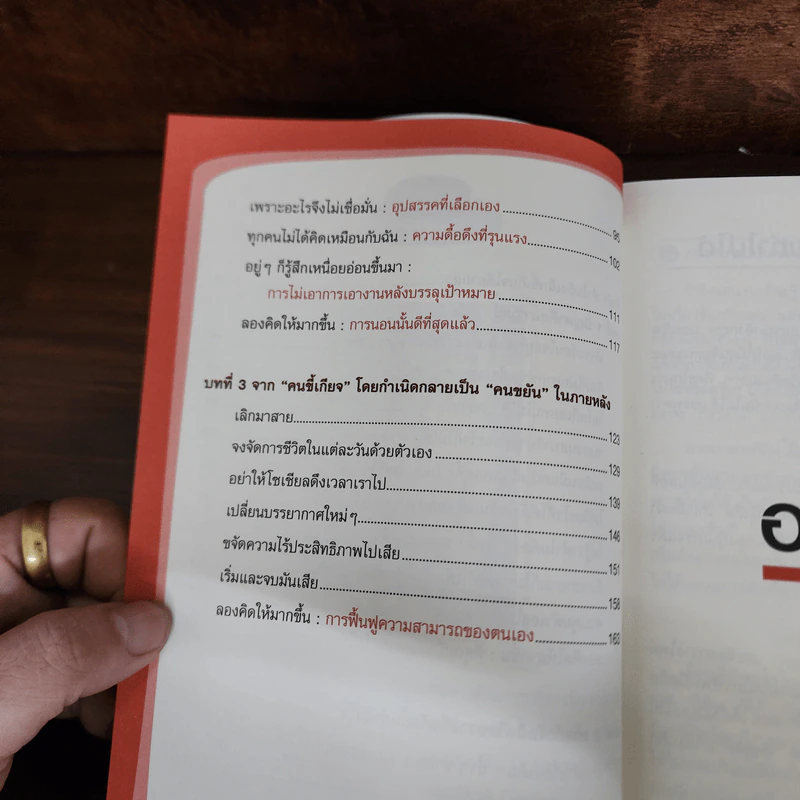 เพราะอะไรจึงไม่เชื่อมั่น : อุปสรรคที่เลือกเอง 96
ทุกคนไม่ได้คิดเหมือนกับฉัน : ความดื้อดึงที่รุนแรง 102
อยู่ๆ ก็รู้สึกเหนื่อยอ่อนขึ้นมา :
การไม่เอาการเอางานหลังบรรลุเป้าหมาย 111
ลองคิดให้มากขึ้น : การนอนนั้นดีที่สุดแล้ว 117
บทที่ 3 จาก “คนขี้เกียจ” โดยกำเนิดกลายเป็น “คนขยัน” ในภายหลัง
เลิกมาสาย 123
จงจัดการชีวิตในแต่ละวันด้วยตัวเอง 129
อย่าให้โซเชียลดึงเวลาเราไป 139
เปลี่ยนบรรยากาศใหม่ๆ 146
ขจัดความไร้ประสิทธิภาพไปเสีย 151
เริ่มและจบมันเสีย 158
ลองคิดให้มากขึ้น : การฟื้นฟูความสามารถของตนเอง 163